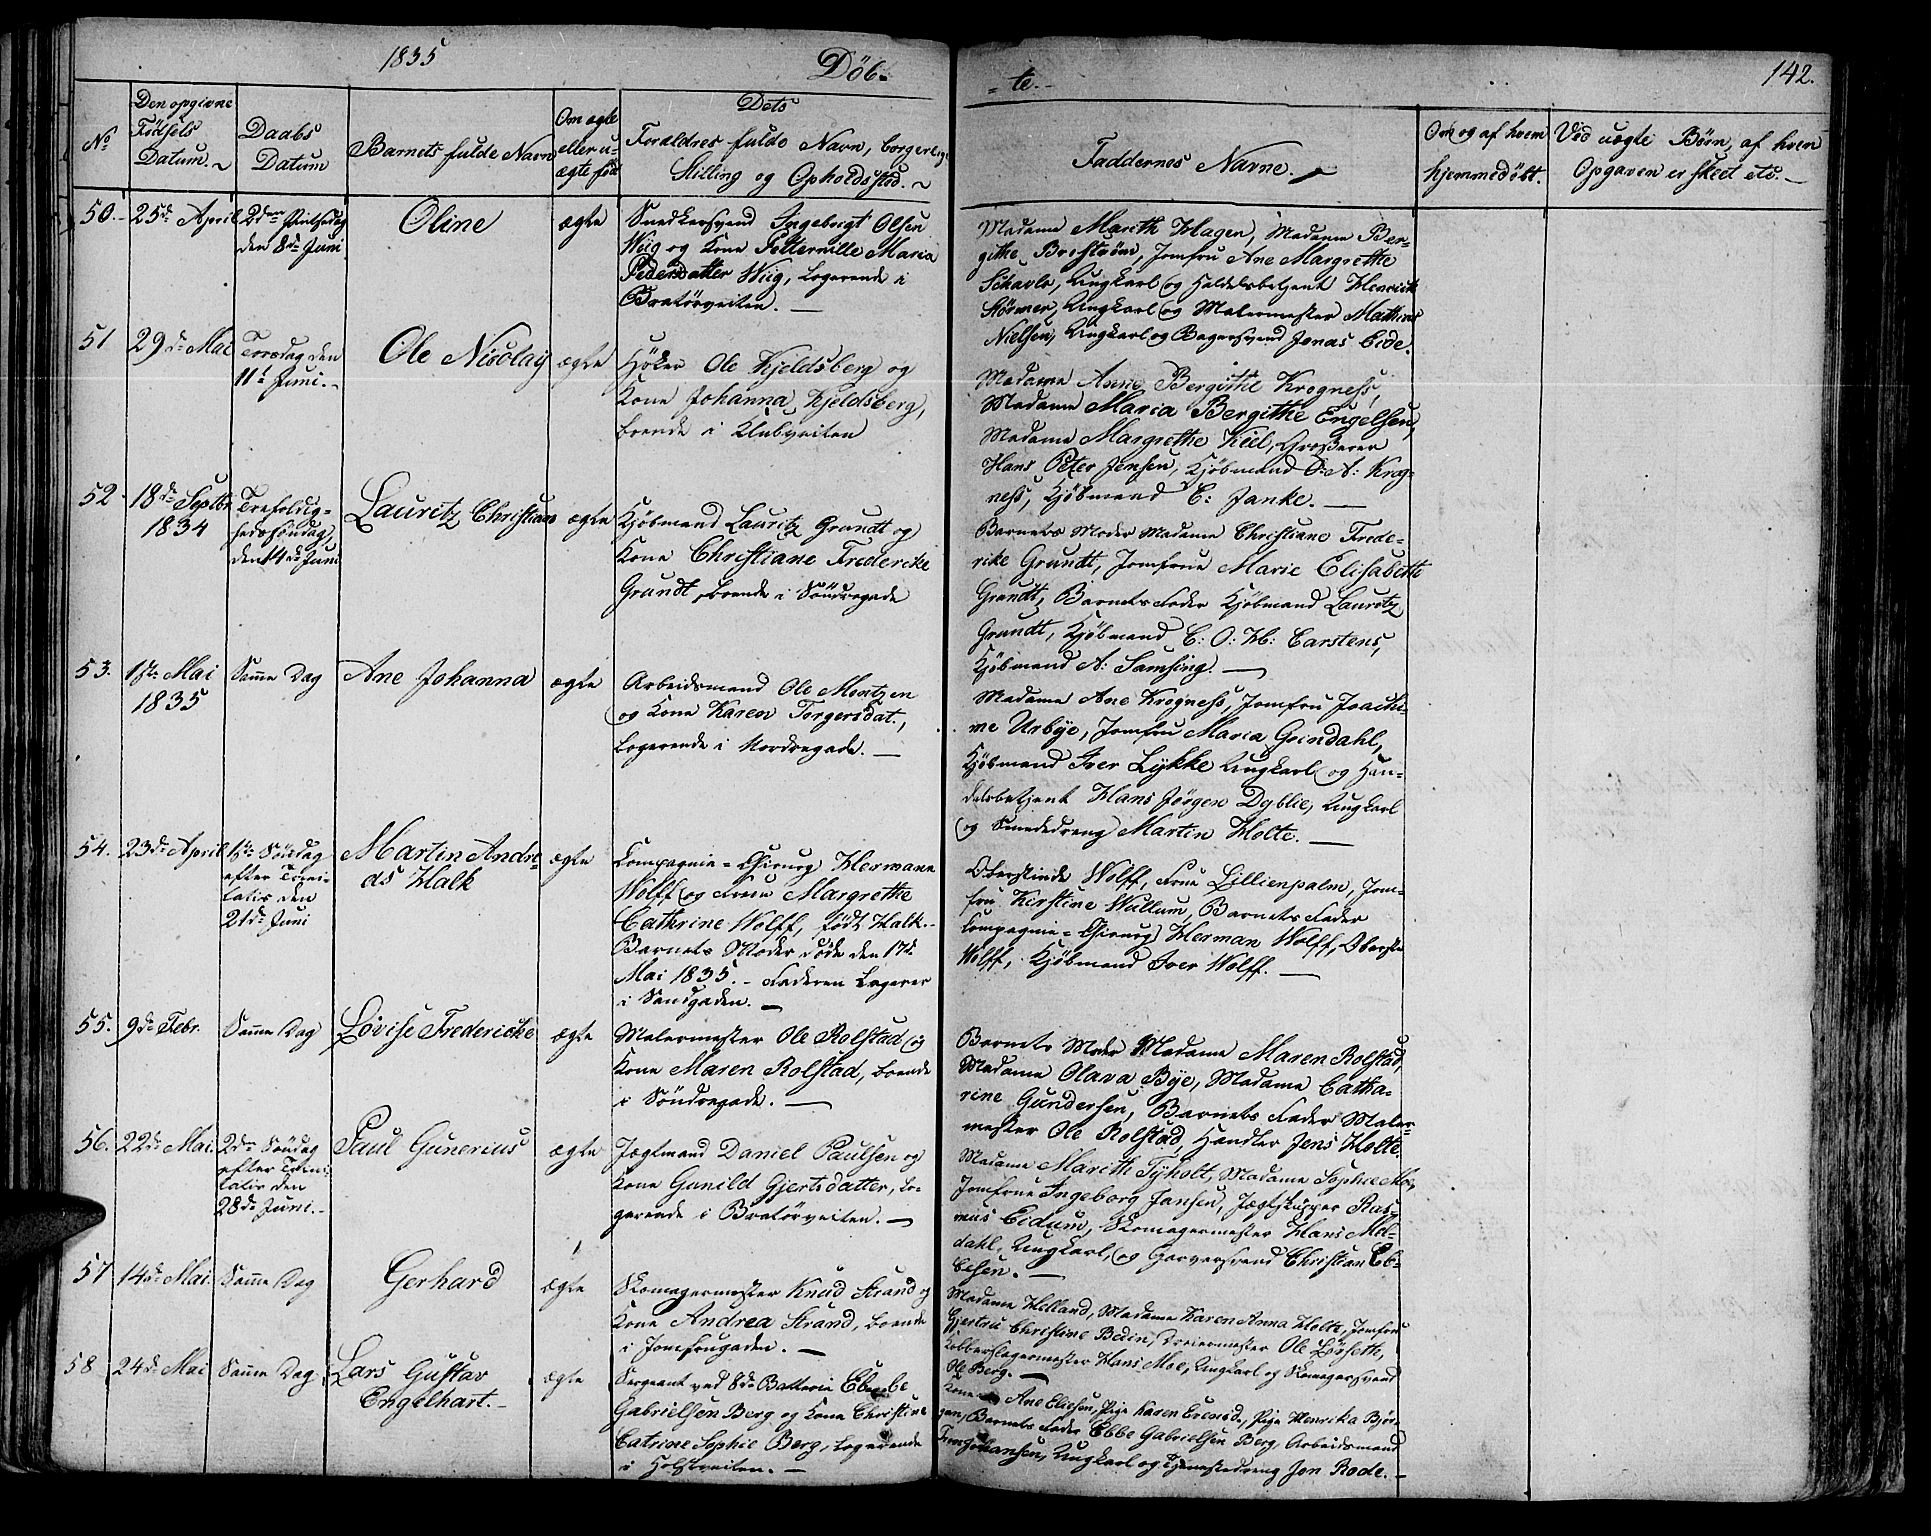 1835
Döb-
-te.-
142.
No
Den opgivne
Födsels
Datum.
Daabs
Datum
Barnets fulde Navn
Om ægte
eller u-
ægte född
Dets
Forældres fulde Navn, borgerlige
Stilling og Opholdsted.
Faddernes Navne.
Om og af hvem
hjemmedöbt.
Ved uægte Börn, af hvem
Opgaven er skeet etc.
50.
25de April
2den Pintsdag
den 8de Juni
Oline
ægte
Snedkersvend Ingebrigt Olsen
Wiig og Kone Petternille Maria
Pedersdatter Wiig, logerende i
Bratörveiten.
Madame Marith Hagen, Madame Ber-
githe Broström, Jomfru Ane Margrethe
Schavlo, Ungkarl og Handelsbetjent Henrich
Störmer, Ungkarl og Malermester Mathias
Nielsen, Ungkarl og Bagersvend Jonas Eide.
51
29de Mai
Torsdag den
11te Juni.
Ole Nicolay
ægte
Höker Ole Kjeldsberg og
Kone Johanna Kjeldsberg,
boende i Klubveiten
Madame Anne Bergithe Krogness,
Madame Maria Bergithe Engelsen,
Madame Margrethe Kiil, Grosserer
Hans Peter Jensen, Kjöbmand O: A: Krog-
ness, Kjöbmand C: Janke.
52
18de Septbr
1834
Trefoldig-
hedssöndag,
den 14de Juni
Lauritz Christian
ægte
Kjöbmand Lauritz Grundt og
Kone Christiane Frederike
Grundt, boende i Söndregade
Barnets Moder Madame Christiane Frede-
rike Grundt, Jomfrue Marie Elisabeth
Grundt, Barnets Fader Kjöbmand Lauritz
Grundt, Kjöbmand C: O: H: Carstens,
Kjöbmand A: Samsing.
53.
1ste Mai
1835
Samme Dag
Ane Johanna
ægte
Arbeidsmand Ole Mentzen
og Kone Karen Torgersdat.,
logerende i Nordregade.
Madame Ane Krogness, Jomfru Joachi-
me Urbye, Jomfru Maria Grindahl,
Kjöbmand Iver Lykke Ungkarl og Han-
delsbetjent Hans Jörgen Dyblie, Ungkarl
og Smededreng Martin Holte.
54.
23de April
1ste Söndag
efter Trini-
tatis den
21de Juni
Martin Andre-
as Halk
ægte
Compagnie-Chirurg Hermann
Wolff og Frue Margrethe
Cathrine Wolff, född Halk.
Barnets Moder döde den 17de
Mai 1835. Faderen logerer
i Sandgaden.
Oberstinde Wolff, Frue Lillienpalm, Jom-
fru Kirstine Wullum, Barnets Fader
Compagnie-Chirurg Herman Wolff, Oberst
Wolff, Kjöbmand Iver Wolff.
55.
9de Febr.
Samme Dag
Lovise Fredericke
ægte
Malermester Ole Rolstad og
Kone Maren Rolstad, boende
i Söndregade.
Barnets Moder Madame Maren Rolstad,
Madame Olava Bye, Madame Catha-
rine Gundersen, Barnets Fader Maler-
mester Ole Rolstad, Handler Jens Holte.
56.
22de Mai.
2den Söndag
efter Trini-
tatis den
28de Juni.
Paul Gunerius
ægte
Jægtmand Daniel Paulsen og
Kone Gunild Gjertsdatter, lo-
gerende i Bratörveiten.
Madame Marith Tyholt, Madame Sophie Moe,
Jomfrue Ingeborg Jansen, Jægtskipper Ras-
mus Eidum, Skomagermester Hans Mel-
dahl, Ungkarl og Garversvend Christian Eb-
besen.
57
14de Mai.
Samme Dag
Gerhard
ægte
Skomagermester Knud Strand og
Kone Andrea Strand, boende
i Jomfrugaden.
Madame Helland, Madame Karen Anna Holte, Jomfru
Gjertru Christine Bedin, Dreiermester Ole Lorseth,
Kobberslagermester Hans Moe, Ungkarl og Skomagersvend
Ole Berg.
58
24de Mai
Samme Dag
Lars Gustav
Engelhart.
ægte
Sergeant ved 8de Batterie Ebbe
Gabrielsen Berg og Kone Christine
Catrine Sophie Berg, logerende
i Holstveiten.
Kone Ane Eliesen, Pige Karen Evensd., Pige Henrika Björ-
gan, Barnets Fader Ebbe Gabrielsen Berg, Arbeidsmand
Johansen, Ungkarl og Tjenestedreng Jon Rode.